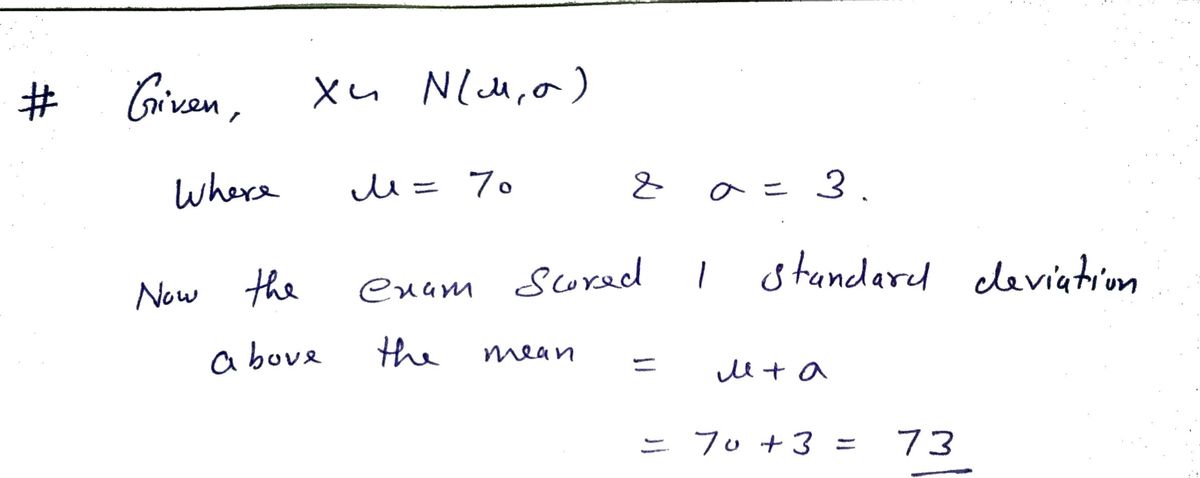 # Given, X ~ N(μ, σ)
Where μ = 70 & σ = 3.
Now the exam Scored 1 standard deviation
above the mean = μ + σ
= 70 + 3 = 73